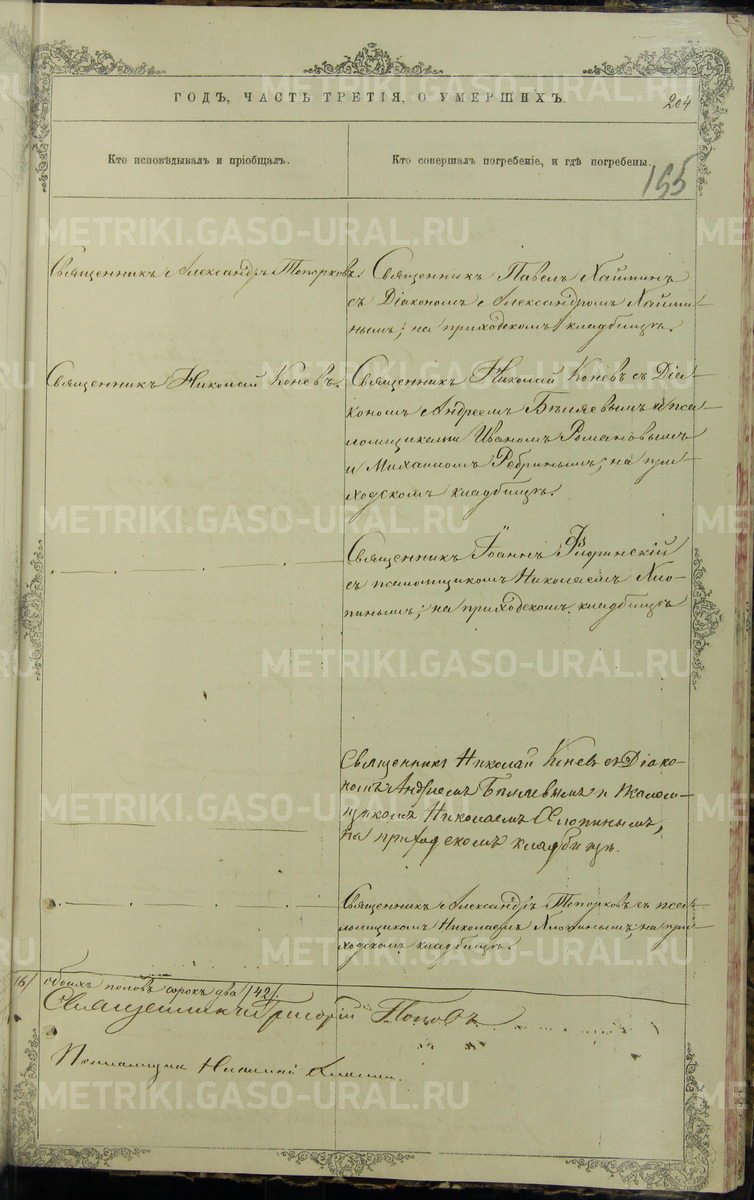 ГОДЪ, ЧАСТЬ ТРЕТІЯ, О УМЕРШИХЪ.
204
Кто исповѣдывалъ и пріобщалъ.
Кто совершалъ погребеніе, и гдѣ погребены.
195
Священникъ Александръ Топорковъ.
Священникъ Павелъ Хайминъ
съ Діакономъ Александромъ Хайми-
нымъ; на приходскомъ кладбищѣ.
Священникъ Николай Коневъ.
Священникъ Николай Коневъ съ Діа-
кономъ Андреемъ Бѣляевымъ и пса-
ломщиками Иваномъ Романовымъ
и Михаиломъ Ребринымъ; на при-
ходскомъ кладбищѣ.
Священникъ Іоаннъ
съ псаломщикомъ Николаемъ Хло-
пинымъ; на приходскомъ кладбищѣ
Священникъ Николай Коневъ съ Діако-
номъ Андреемъ Бѣляевымъ и Псалом-
щикомъ Николаемъ Хлопинымъ,
на приходскомъ кладбищѣ.
Священникъ Александръ Топорковъ съ псал-
ломщикомъ Николаемъ Хлопинымъ; на при-
ходскомъ кладбищѣ.
16/ обоихъ половъ сорокъ два /42/.
Священникъ Григорій Поповъ
Псаломщикъ Николай Хлопинъ.
METRIKI.GASO-URAL.RU